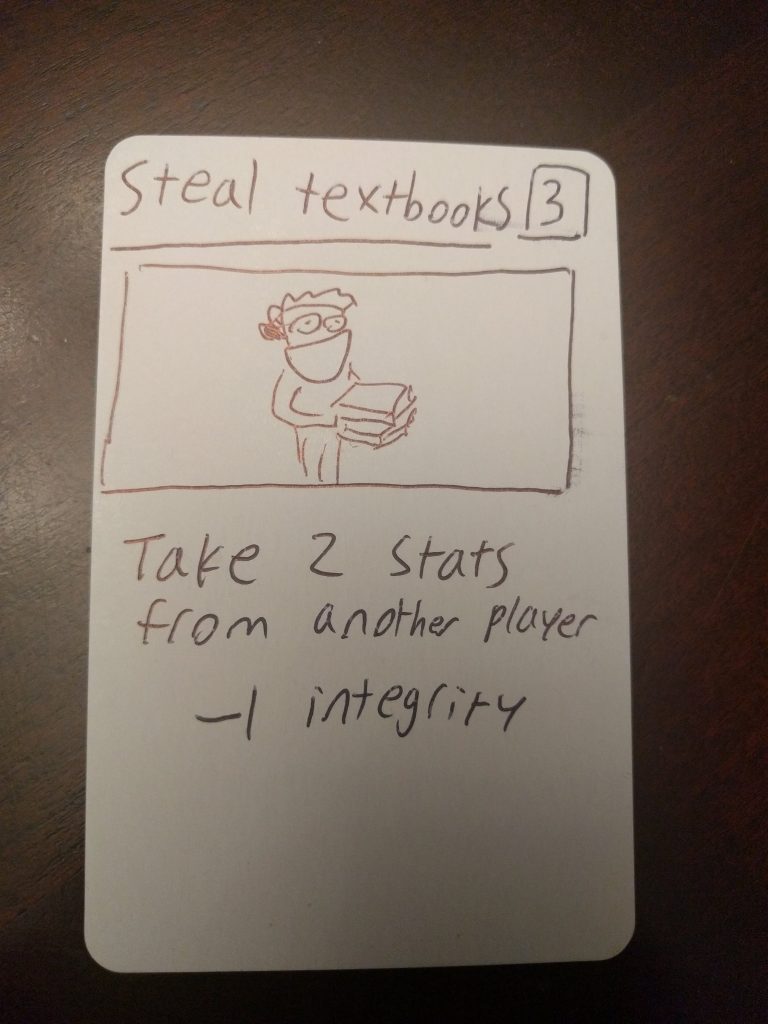 Steal textbooks 3
Take 2 stats
from another player
-1 integrity